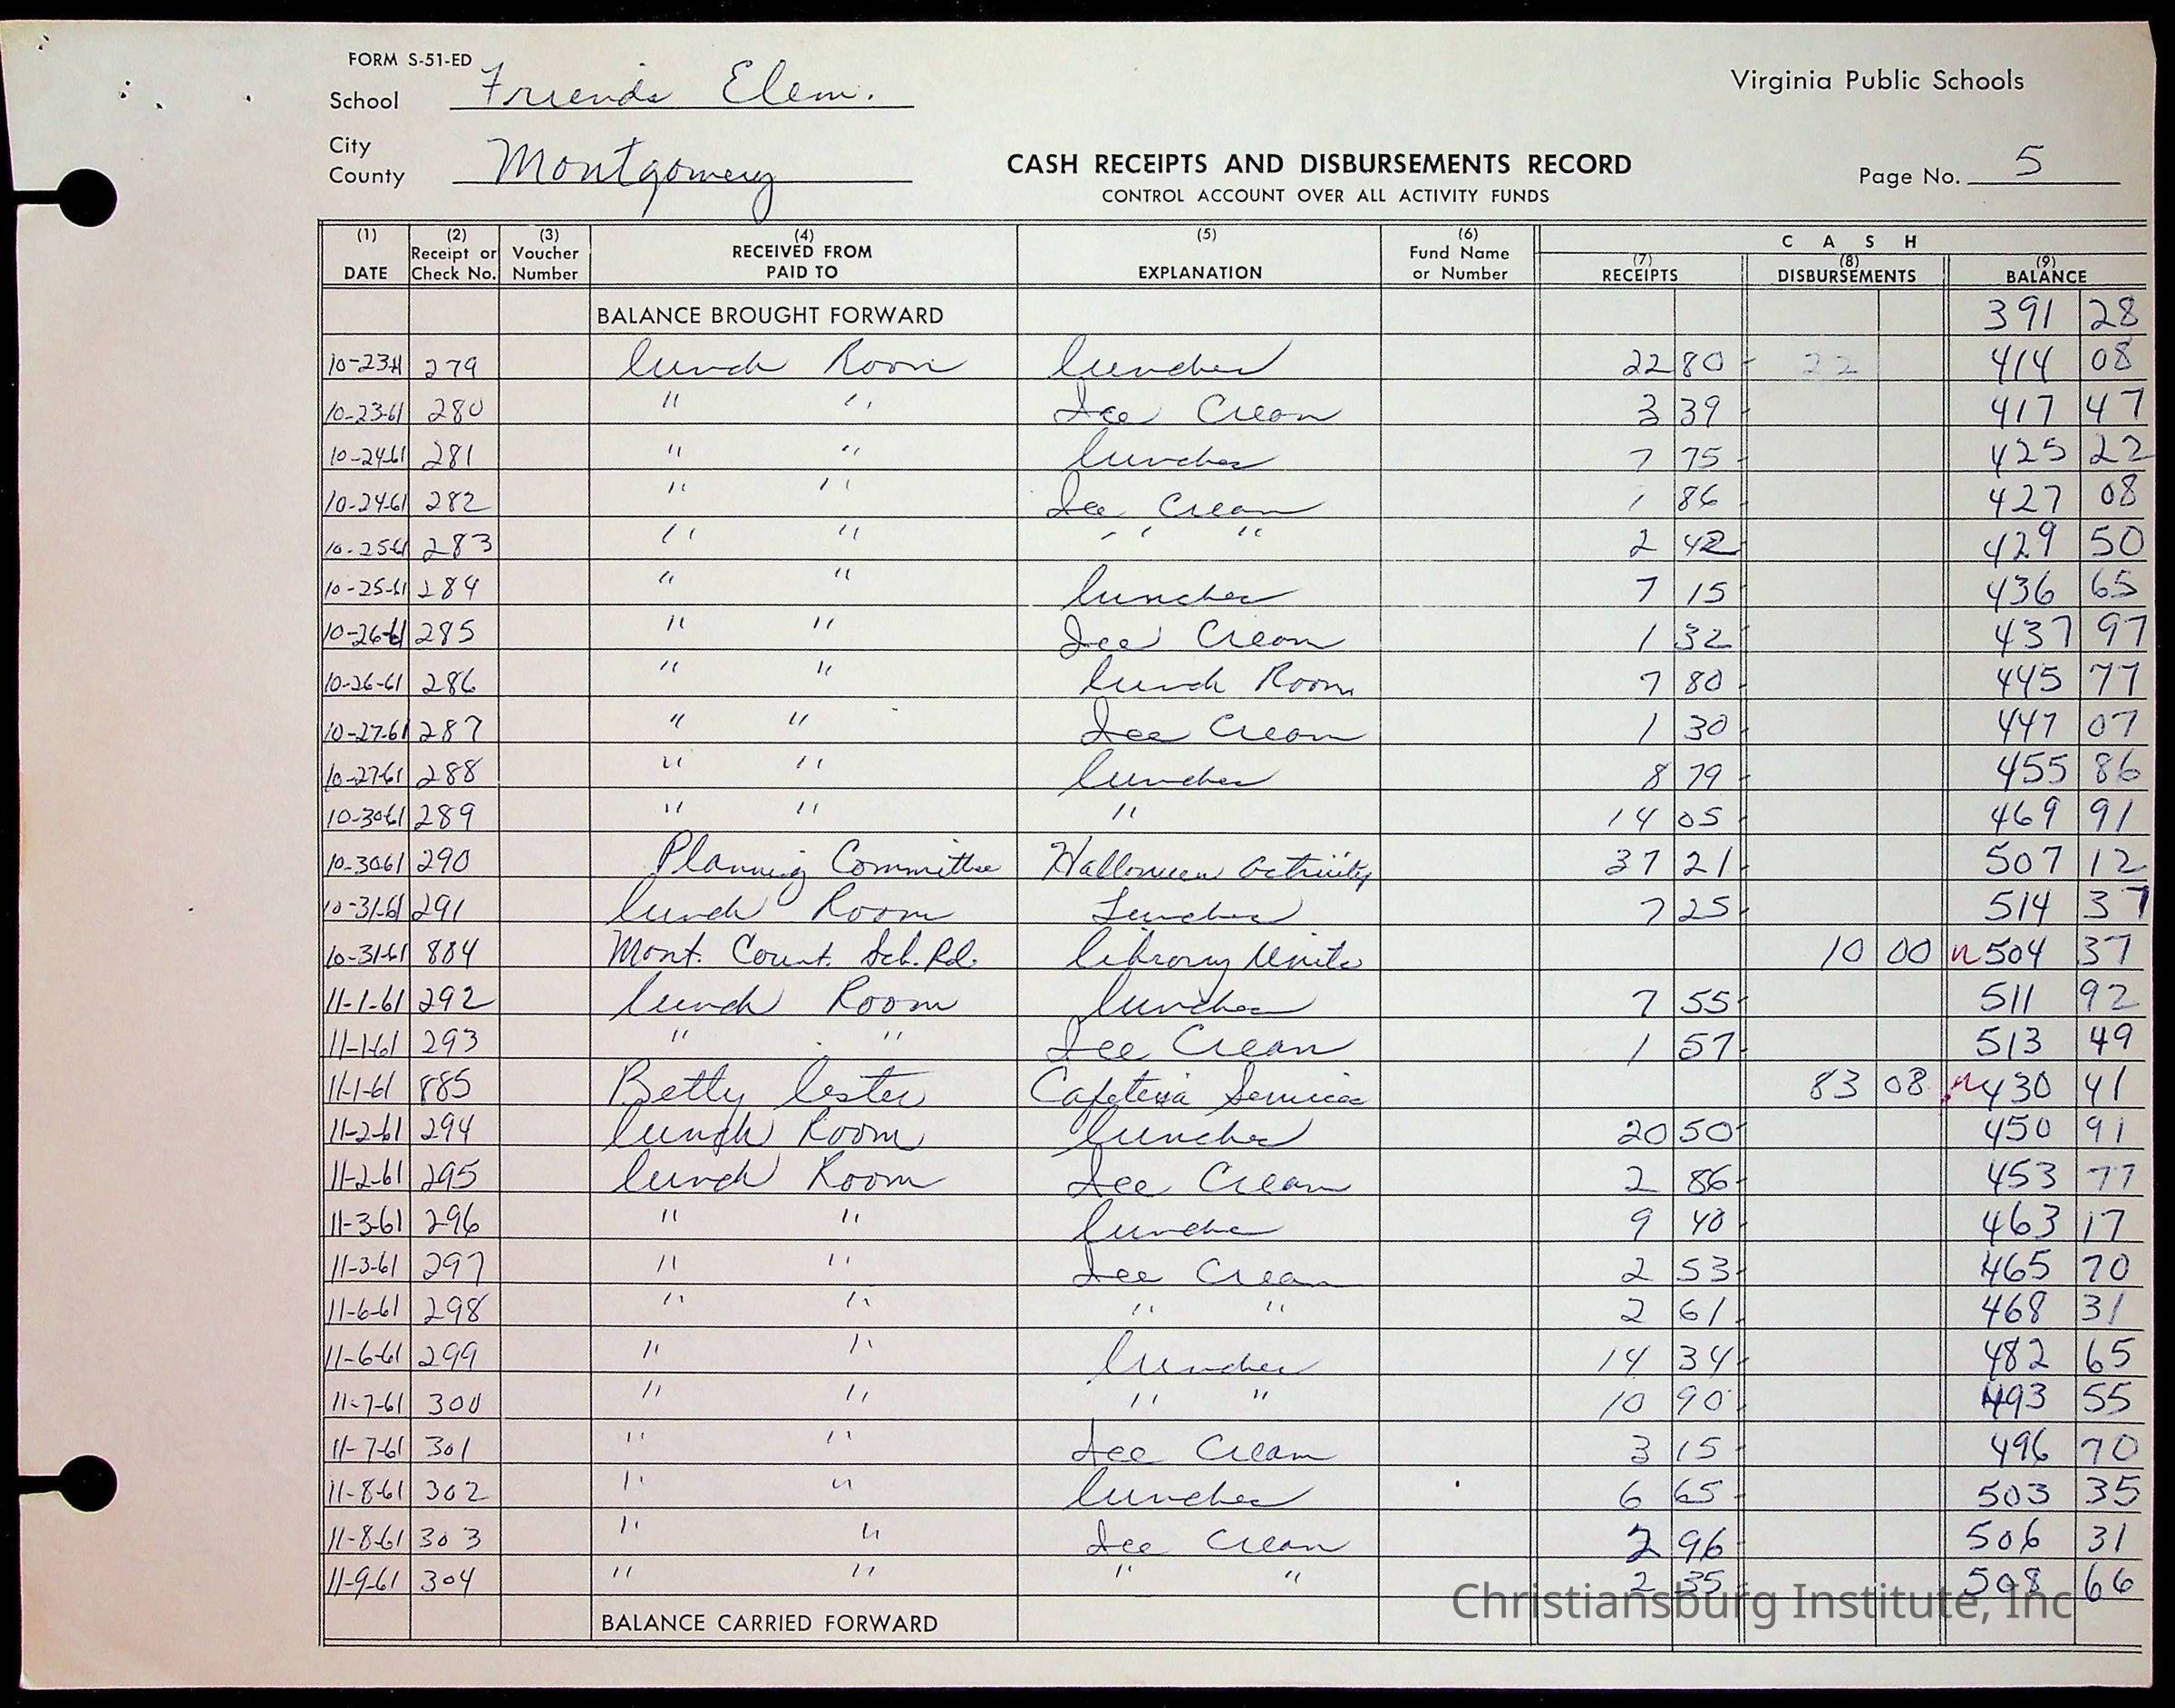 FORM S-51-ED
School Friends Elem.
Virginia Public Schools
City
County Montgomery
CASH RECEIPTS AND DISBURSEMENTS RECORD
Page No. 5
CONTROL ACCOUNT OVER ALL ACTIVITY FUNDS
(1) DATE (2) Receipt or Check No. (3) Voucher Number (4) RECEIVED FROM PAID TO (5) EXPLANATION (6) Fund Name or Number CASH (7) RECEIPTS (8) DISBURSEMENTS (9) BALANCE
BALANCE BROUGHT FORWARD 391 28
10-23-61 279 lunch Room lunches 22 80 22 414 08
10-23-61 280 " " Ice Cream 3 39 417 47
10-24-61 281 " " lunches 7 75 425 22
10-24-61 282 " " Ice Cream 1 86 427 08
10-25-61 283 " " " " 2 42 429 50
10-25-61 284 " " lunches 7 15 436 65
10-26-61 285 " " Ice Cream 1 32 437 97
10-26-61 286 " " lunch Room 7 80 445 77
10-27-61 287 " " Ice Cream 1 30 447 07
10-27-61 288 " " lunches 8 79 455 86
10-30-61 289 " " " 14 05 469 91
10-30-61 290 Planning Committee Halloween Activity 37 21 507 12
10-31-61 291 lunch Room Lunches 7 25 514 37
10-31-61 884 Mont. Count. Sch. Bd. library Units 10 00 504 37
11-1-61 292 lunch Room lunches 7 55 511 92
11-1-61 293 " " Ice Cream 1 57 513 49
11-1-61 885 Betty lester Cafeteria Services 83 08 430 41
11-2-61 294 lunch Room lunches 20 50 450 91
11-2-61 295 lunch Room Ice Cream 2 86 453 77
11-3-61 296 " " lunches 9 40 463 17
11-3-61 297 " " Ice Cream 2 53 465 70
11-6-61 298 " " " " 2 61 468 31
11-6-61 299 " " lunches 14 34 482 65
11-7-61 300 " " " " 10 90 493 55
11-7-61 301 " " Ice Cream 3 15 496 70
11-8-61 302 " " lunches 6 65 503 35
11-8-61 303 " " Ice Cream 2 96 506 31
11-9-61 304 " " " " 2 35 508 66
Christiansburg Institute, Inc
BALANCE CARRIED FORWARD